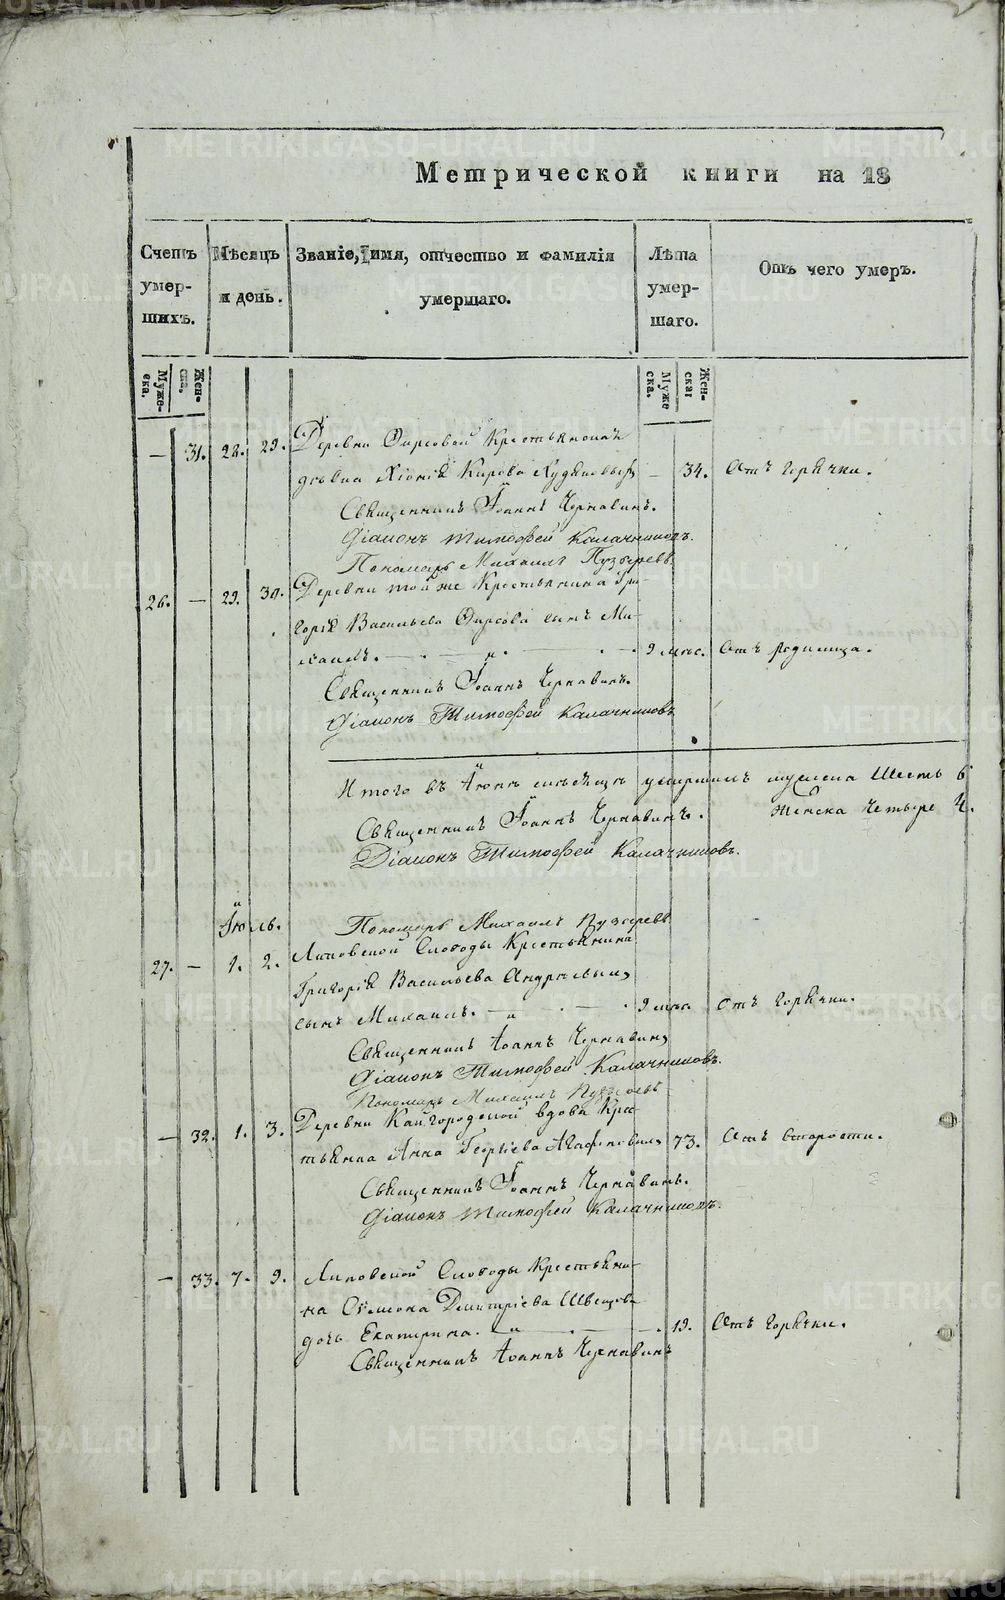 Метрической книги на 18
Счетъ умер-шихъ.
Мѣсяцъ и день.
Званіе, имя, отчество и фамилія умершаго.
Лѣта умер-шаго.
Отъ чего умеръ.
Муже-ска.
Жен-ска.
Муже ска.
Жен-ска:
— 31. 28. 29. Деревни Фирсовой Крестьянскъ
Кирова — 34. Отъ горячки.
Священникъ Іоаннъ Чернавинъ.
Діаконъ Тимофей Калачниковъ.
Пономарь Михаилъ Пузыревъ
26. — 29. 30. Деревни той же Крестьянина Гри-
горія Васильева Фирсова сынъ Ми-
хаилъ. 9 мѣс. Отъ родимца.
Священникъ Іоаннъ Чернавинъ.
Діаконъ Тимофей Калачниковъ
Итого въ Іюнѣ мѣсяцѣ умершихъ мужеска Шесть 6
Женска Четыре 4.
Священникъ Іоаннъ Чернавинъ.
Діаконъ Тимофей Калачниковъ.
Пономарь Михаилъ Пузыревъ
Іюль.
27. — 1. 2. Липовской Слободы Крестьянина
Григорія Васильева
сынъ Михаилъ. 9 мѣс. Отъ горячки.
Священникъ Іоаннъ Чернавинъ
Діаконъ Тимофей Калачниковъ.
Пономарь Михаилъ Пузыревъ
— 32. 1. 3. Деревни Кайгородской вдова Крес-
тьянка Анна Георгіева 73. Отъ старости.
Священникъ Іоаннъ Чернавинъ.
Діаконъ Тимофей Калачниковъ.
— 33. 7. 9. Липовской Слободы Крестьяни-
на Симеона Дмитріева Швецова
дочь Екатерина. 19. Отъ горячки.
Священникъ Іоаннъ Чернавинъ
METRIKI.GASO-URAL.RU